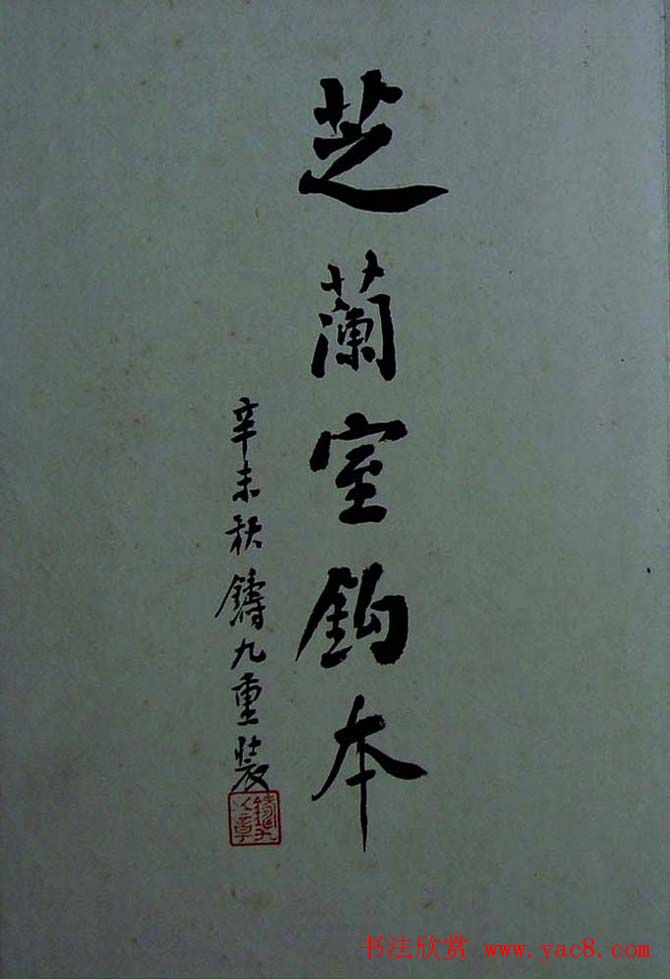 芝蘭室鈎本
辛未秋鑄九重裝
鑄九之章
书法欣赏 www.yac8.com